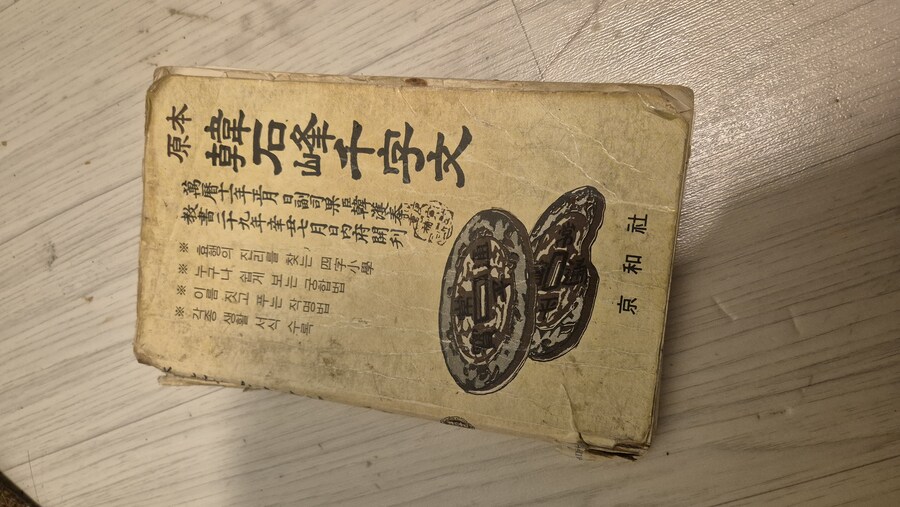 原本
韓石峰千字文
萬曆十一年正月 日副司果臣韓濩奉
教書二十九年辛丑七月日內府開刊
※ 효행의 진리를 찾는 四字小學
※ 누구나 쉽게 보는 궁합법
※ 이름 짓고 푸는 작명법
※ 각종 생활 서식 수록
常平通寶
京和社